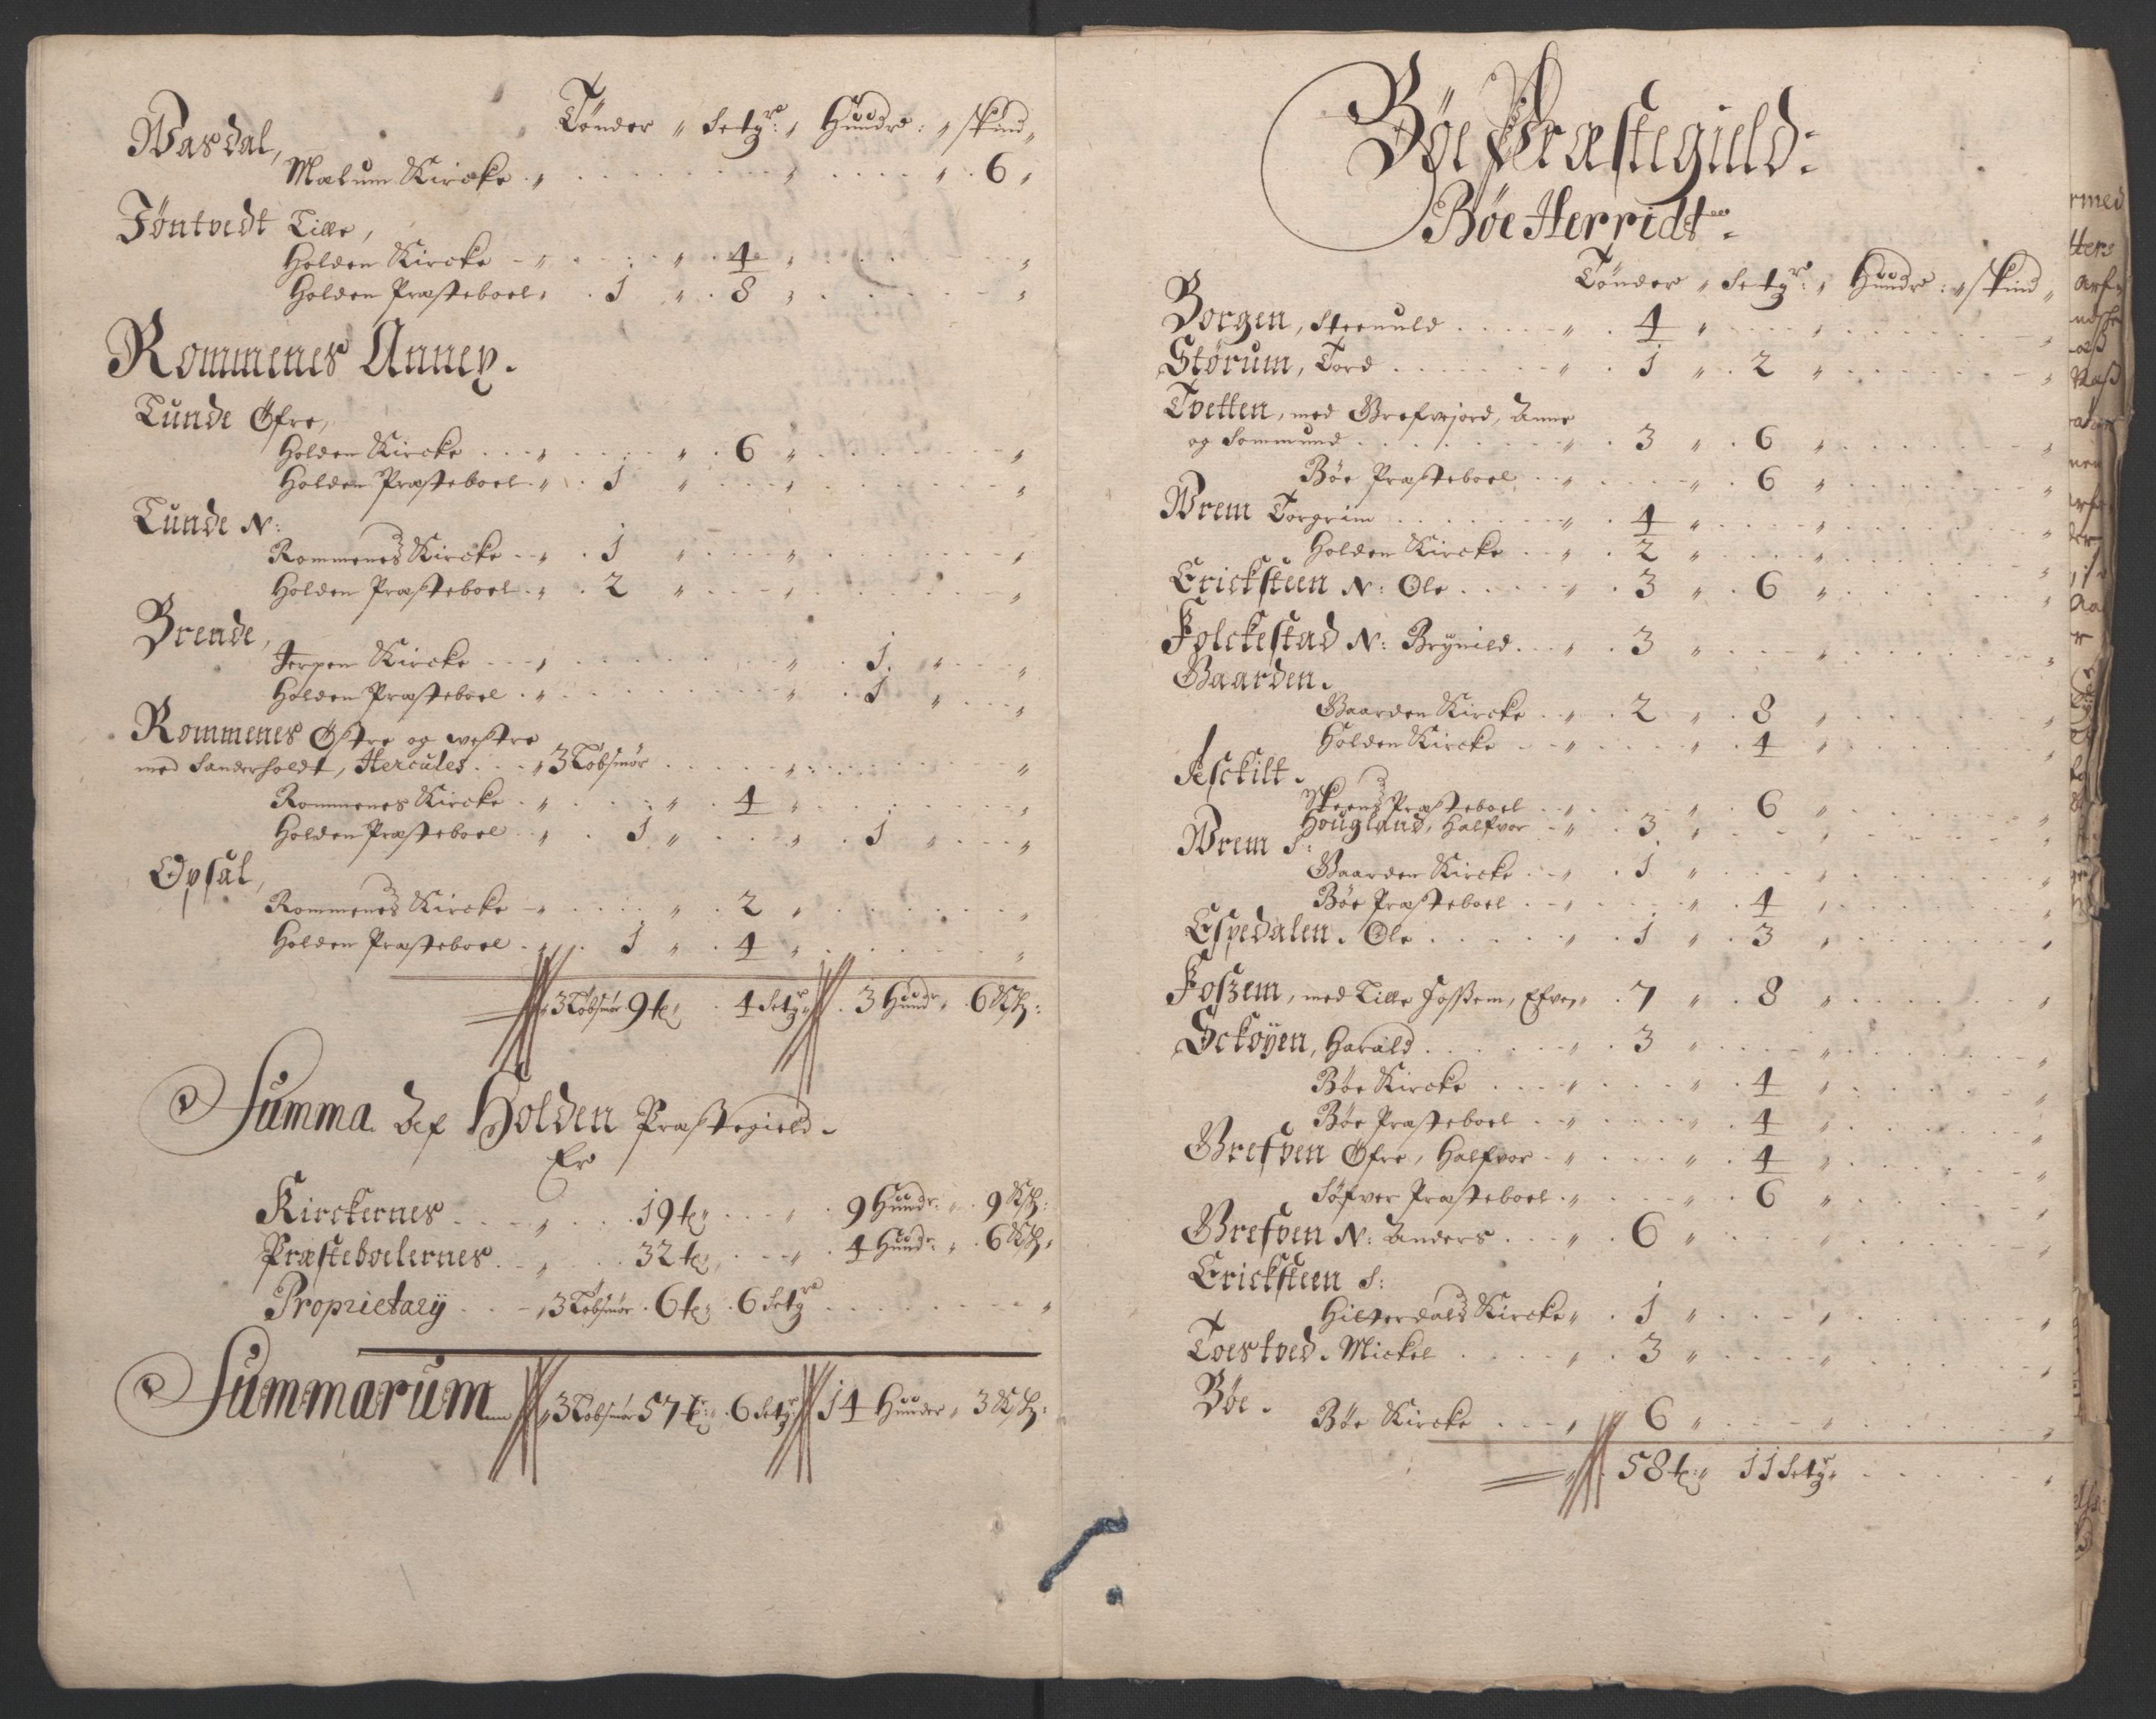 Tønder „ Setgr: „ Hundr: „ Skind „
Wasdal,
Mælum Kircke „ 6 „
Jøntvedt Lille,
Holden Kircke „ 4 „
Holden Præsteboel „ 1 „ 8 „
Rommenes Annex.
Lunde Øfre,
Holden Kircke „ 6 „
Holden Præsteboel „ 1 „
Lunde N:
Rommenes Kircke „ 1 „
Holden Præsteboel „ 2 „
Brende,
Jerpen Kircke „ 1 „
Holden Præsteboel „ 1 „
Rommenes Østre og westre
med Sanderholdt, Hercules „ 3 Løbsmør
Rommenes Kircke „ 4 „
Holden Præsteboel „ 1 „ 1 „
Opsal,
Rommenes Kircke „ 2 „
Holden Præsteboel „ 1 „ 4 „
3 Løbsmør 9 t: 4 Setgr „ 3 Hundr „ 6 Sk:
Summa Def Holden Præstegield.
Er
Kirckernes „ 19 t: „ 9 Hundr: „ 9 Sk:
Præsteboelernes „ 32 t: „ 4 Hundr: „ 6 Sk:
Proprietarij „ 3 Løbsmør 6 t: 6 Setgr
Summarum „ 3 Løbsmør 57 t: „ 6 Setgr 14 Hunder „ 3 Sk:
Bøe Præstegield:
Bøe Herridt
Tønder „ Setgr: „ Hundr: „ Skind „
Borgen, Steenuld „ 4 „
Størum, Tord „ 1 „ 2 „
Tvetten, med Grefvejord, Anne
og Sommund „ 3 „ 6 „
Bøe Præsteboel „ 6 „
Wrem Torgrim „ 4 „
Holden Kircke „ 2 „
Ericksteen N: Ole „ 3 „ 6 „
Folckestad N: Brynild „ 3 „
Gaarden.
Gaarden Kircke „ 2 „ 8 „
Holden Kircke „ 4 „
Asckilt.
Skeens Præsteboel „ 6 „
Hougland, Halfvor „ 3 „
Wrem S:
Gaarden Kircke „ 1 „
Bøe Præsteboel „ 4 „
Espedalen. Ole „ 1 „ 3 „
Foszem, med Lille Fossem, Efven „ 7 „ 8 „
Sckoyen, Harald „ 3 „
Bøe Kircke „ 4 „
Bøe Præsteboel „ 4 „
Grefven Øfre, Halfvor „ 4 „
Søfver Præsteboel „ 6 „
Grefven N: Anders „ 6 „
Ericksteen S:
Hitterdals Kircke „ 1 „
Toestved. Mickel „ 3 „
Bøe.
Bøe Kircke „ 6 „
58 t: „ 11 Setgr „